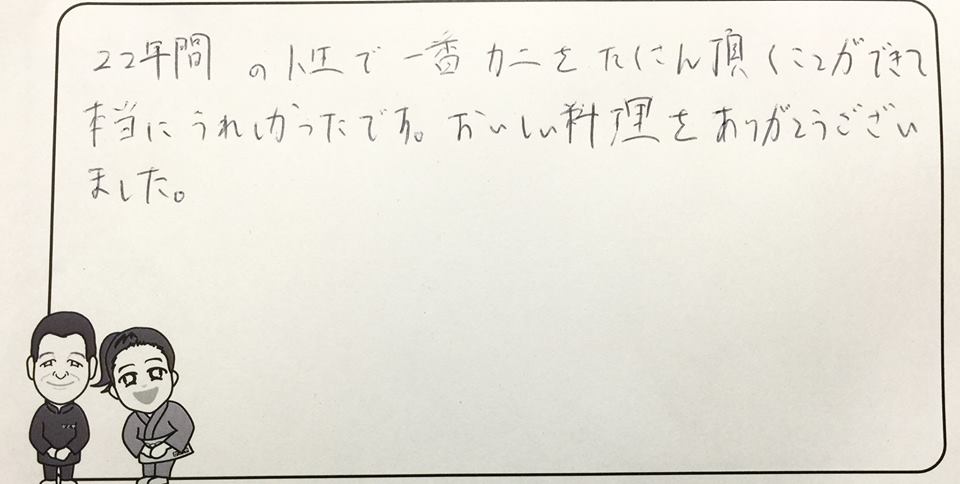 22年間の人生で一番カニをたくさん頂くことができて
本当にうれしかったです。おいしい料理をありがとうござい
ました。